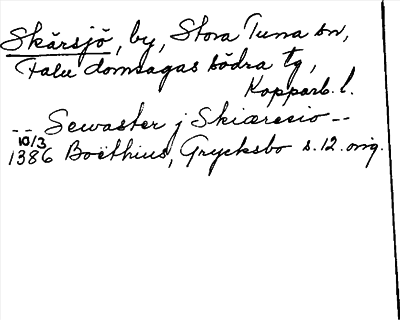 Skärsjö, by, Stora Tuna sn,
Falu domsagas södra tg,
Kopparb. l.
-- Sewaster j Skiæresio --
10/3
1386 Boëthius, Grycksbo s. 12. orig.